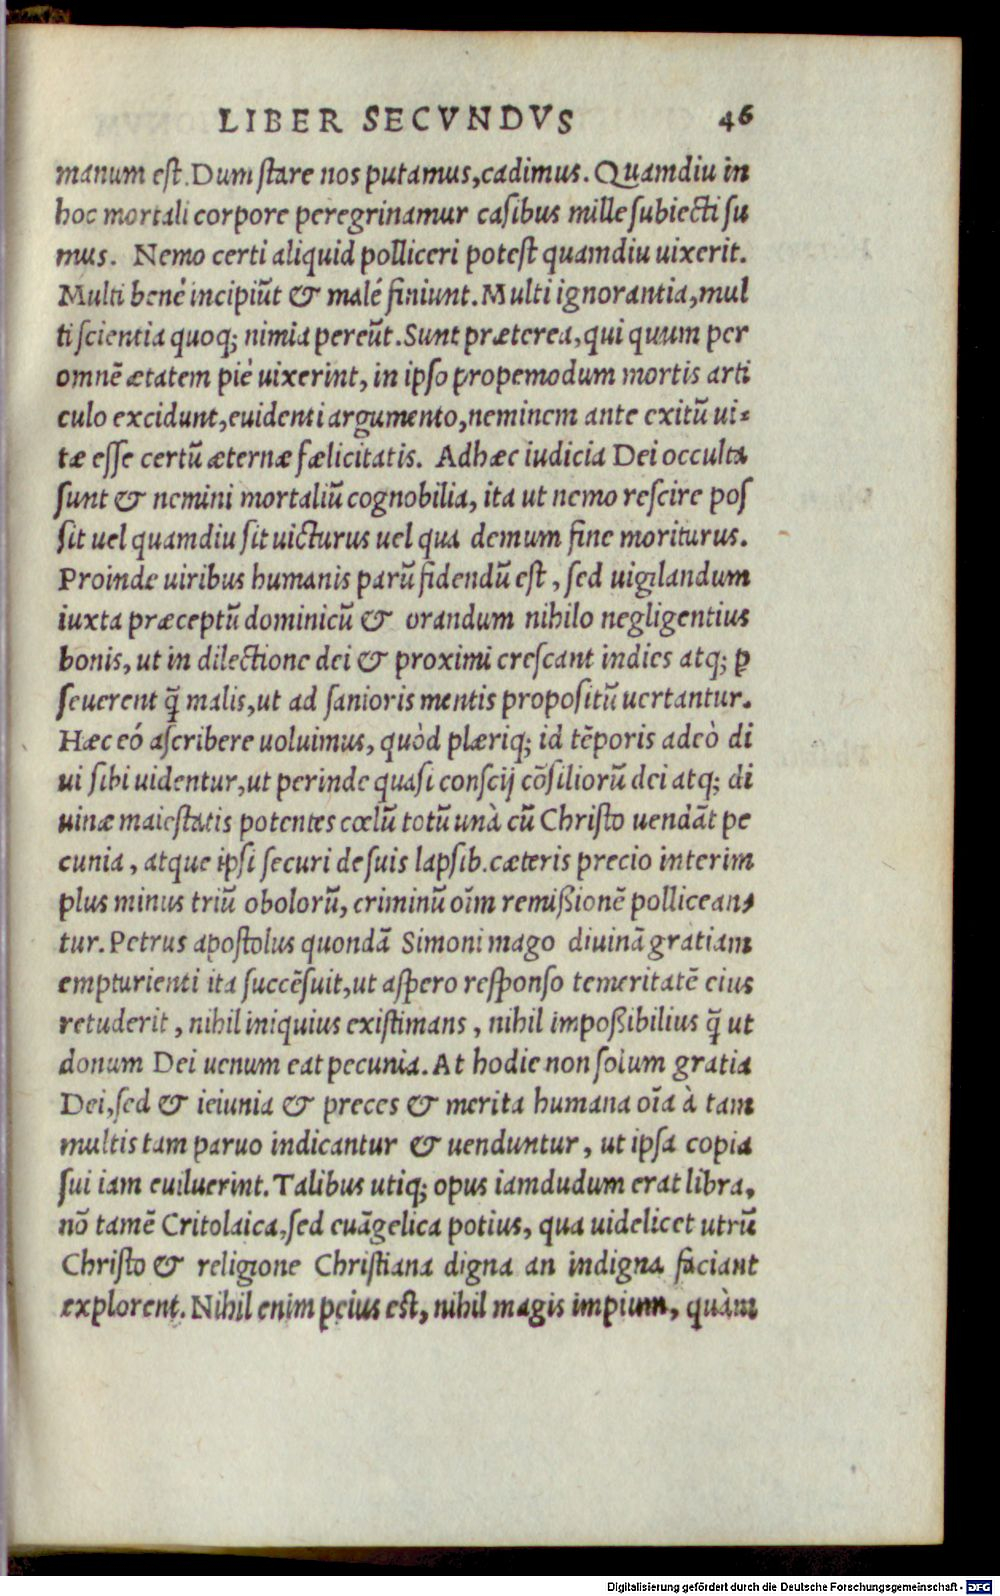 LIBER SECVNDVS 46
manum est. Dum stare nos putamus, cadimus. Quamdiu in
hoc mortali corpore peregrinamur casibus mille subiecti su
mus. Nemo certi aliquid polliceri potest quamdiu uixerit.
Multi benè incipiũt & malé finiunt. Multi ignorantia, mul
ti scientia quoq; nimia pereũt. Sunt præterea, qui quum per
omnẽ ætatem piè uixerint, in ipso propemodum mortis arti
culo excidunt, euidenti argumento, neminem ante exitũ ui-
tæ esse certũ æternæ fælicitatis. Adhæc iudicia Dei occulta
sunt & nemini mortaliũ cognobilia, ita ut nemo rescire pos
sit uel quamdiu sit uicturus uel qua demum fine moriturus.
Proinde uiribus humanis parũ fidendũ est, sed uigilandum
iuxta præceptũ dominicũ & orandum nihilo negligentius
bonis, ut in dilectione dei & proximi crescant indies atq; ꝑ
seuerent q̃ malis, ut ad sanioris mentis propositũ uertantur.
Hæc eó ascribere uoluimus, quòd plæriq; id tẽporis adeò di
ui sibi uidentur, ut perinde quasi conscij cõsiliorũ dei atq; di
uinæ maiestatis potentes cœlũ totũ unà cũ Christo uendãt pe
cunia, atque ipsi securi de suis lapsib. cæteris precio interim
plus minus triũ obolorũ, criminũ oĩm remißionẽ pollicean-
tur. Petrus apostolus quondã Simoni mago diuinã gratiam
empturienti ita succẽsuit, ut aspero responso temeritatẽ eius
retuderit, nihil iniquius existimans, nihil impoßibilius q̃ ut
donum Dei uenum eat pecunia. At hodie non solum gratia
Dei, sed & ieiunia & preces & merita humana oĩa à tam
multis tam paruo indicantur & uenduntur, ut ipsa copia
sui iam euiluerint. Talibus utiq; opus iamdudum erat libra,
nõ tamẽ Critolaica, sed euãgelica potius, qua uidelicet utrũ
Christo & religione Christiana digna an indigna faciant
explorent. Nihil enim peius est, nihil magis impium, quàm
Digitalisierung gefördert durch die Deutsche Forschungsgemeinschaft - DFG